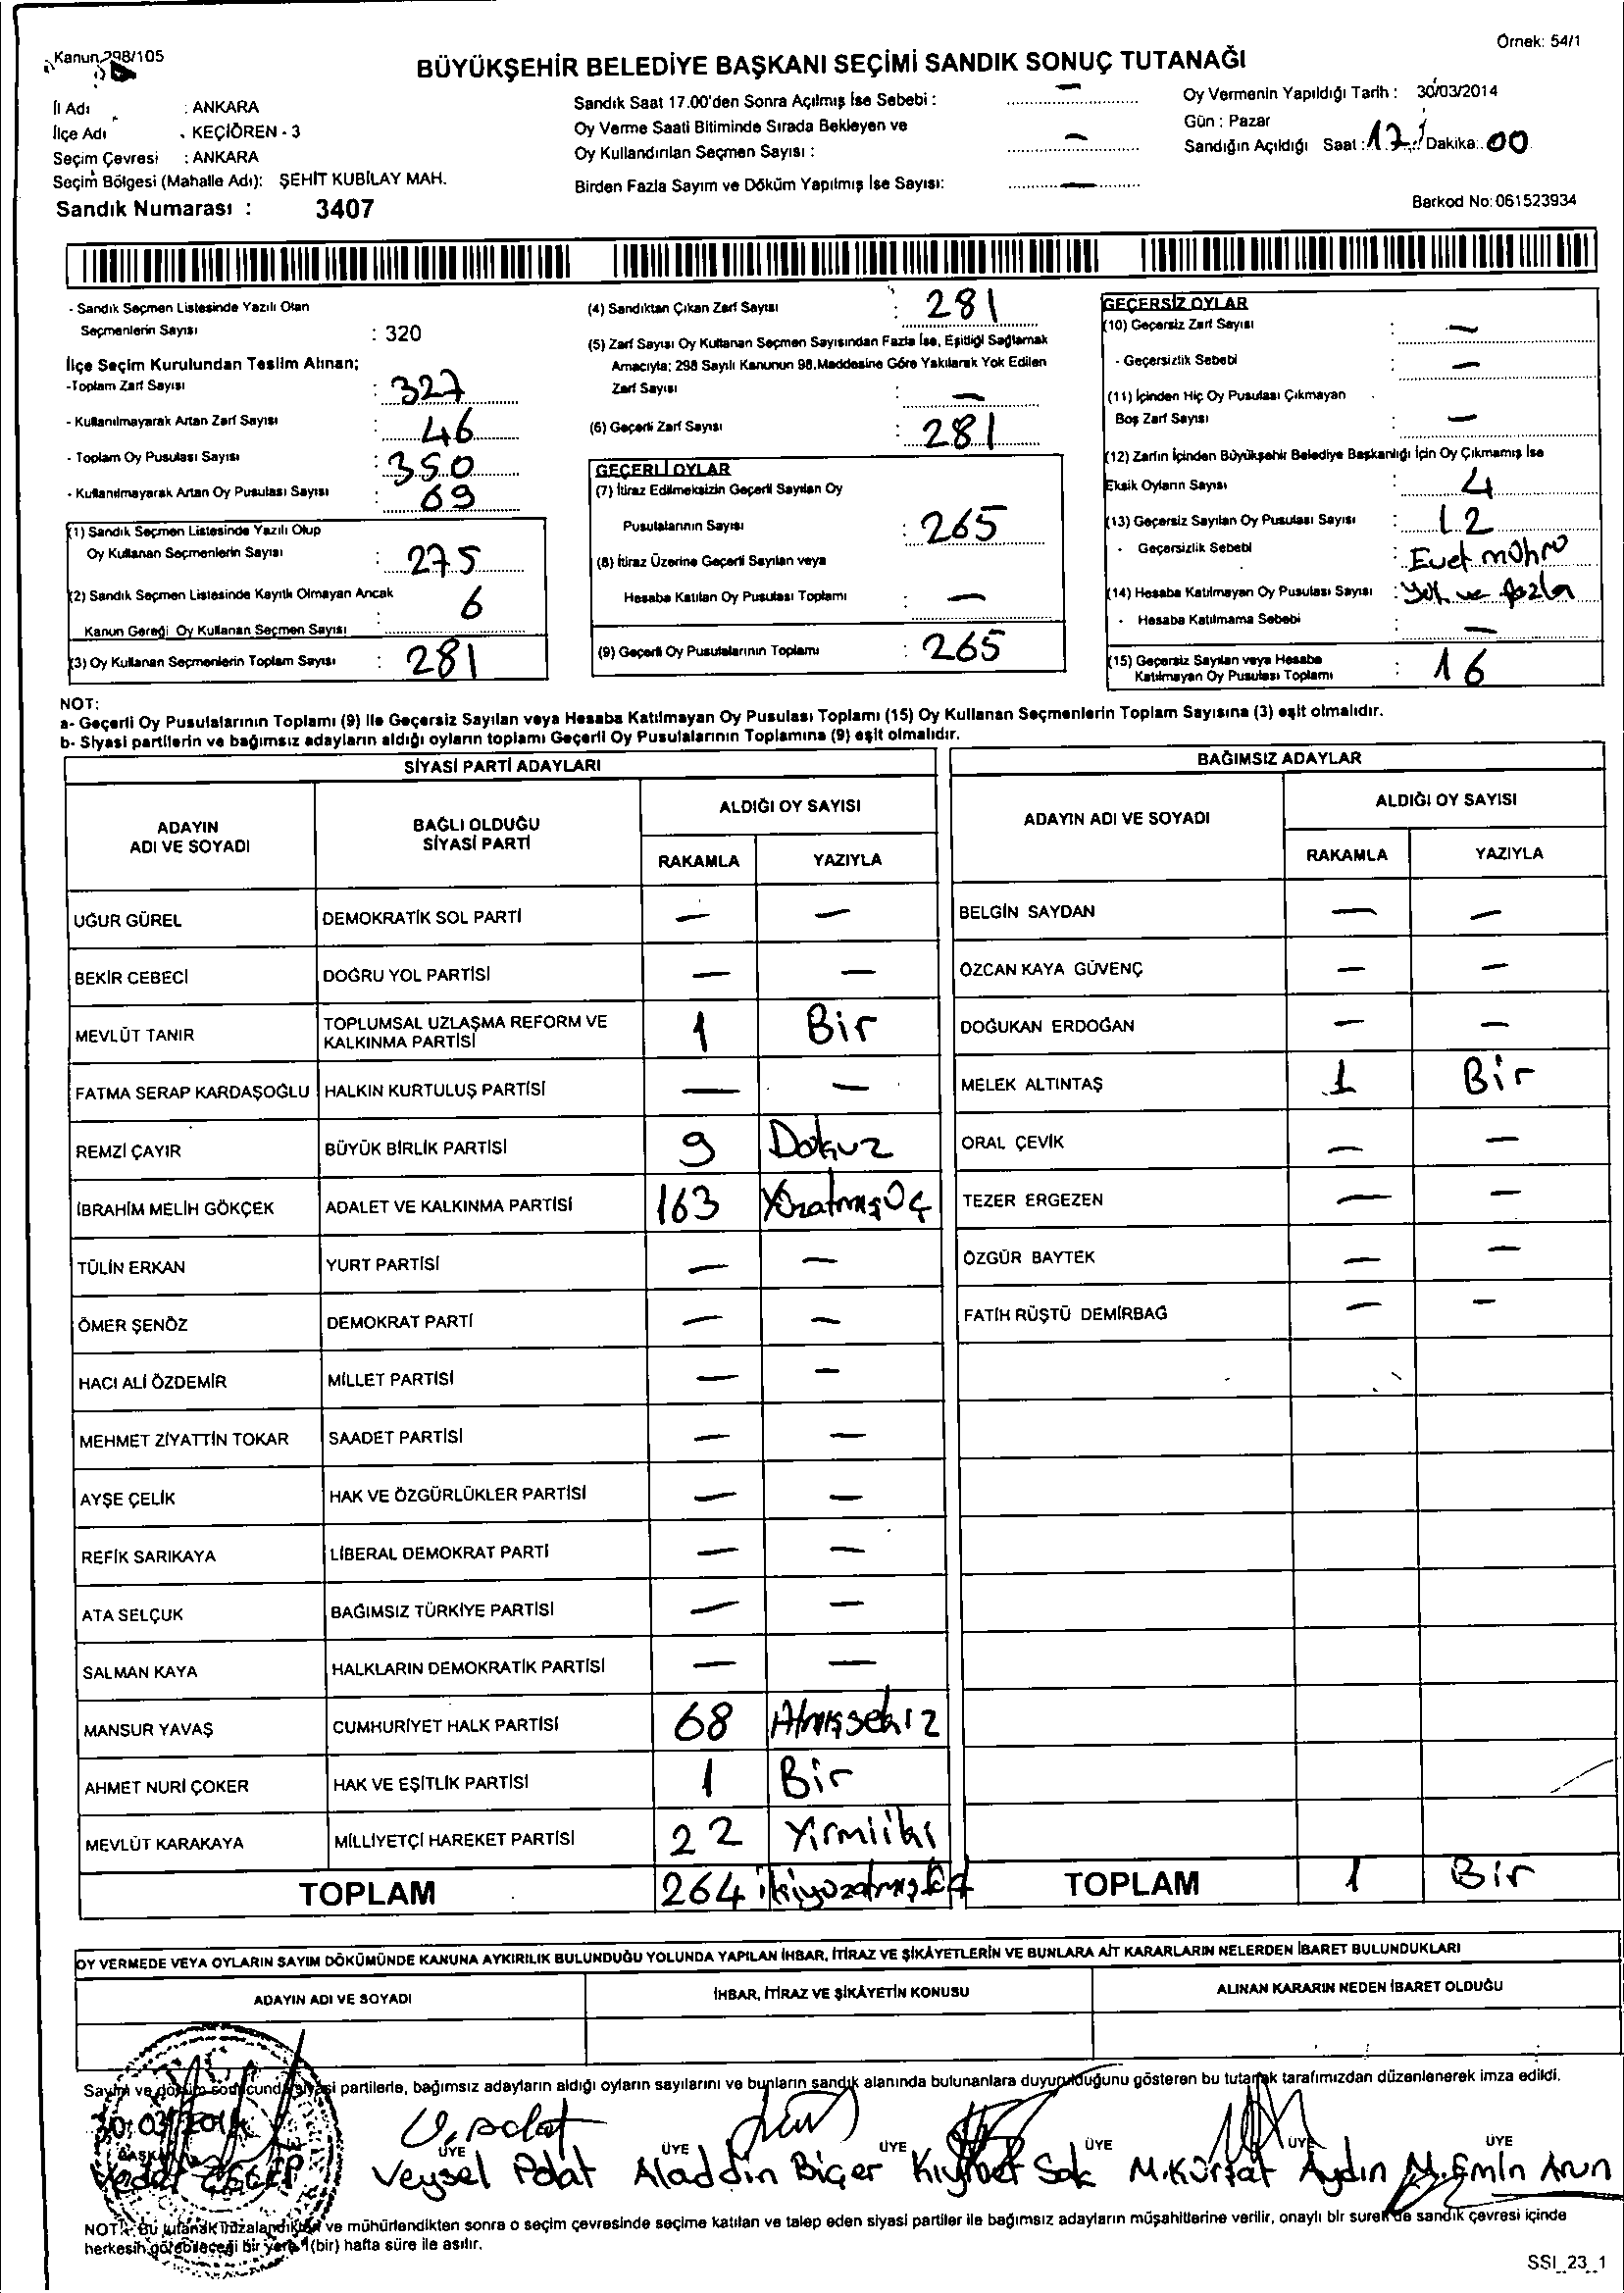 Kanun 298/105
Örnek: 54/1
BÜYÜKŞEHİR BELEDİYE BAŞKANI SEÇİMİ SANDIK SONUÇ TUTANAĞI
İl Adı : ANKARA
İlçe Adı . KEÇİÖREN - 3
Seçim Çevresi : ANKARA
Seçim Bölgesi (Mahalle Adı): ŞEHİT KUBİLAY MAH.
Sandık Numarası : 3407
Sandık Saat 17.00'den Sonra Açılmış İse Sebebi : —
Oy Verme Saati Bitiminde Sırada Bekleyen ve
Oy Kullandırılan Seçmen Sayısı : —
Birden Fazla Sayım ve Döküm Yapılmış İse Sayısı: —
Oy Vermenin Yapıldığı Tarih : 30/03/2014
Gün : Pazar
Sandığın Açıldığı Saat : 17 Dakika: 00
Barkod No: 061523934
- Sandık Seçmen Listesinde Yazılı Olan
Seçmenlerin Sayısı : 320
İlçe Seçim Kurulundan Teslim Alınan;
-Toplam Zarf Sayısı : 327
- Kullanılmayarak Artan Zarf Sayısı : 46
- Toplam Oy Pusulası Sayısı : 350
- Kullanılmayarak Artan Oy Pusulası Sayısı : 69
(1) Sandık Seçmen Listesinde Yazılı Olup
Oy Kullanan Seçmenlerin Sayısı : 275
(2) Sandık Seçmen Listesinde Kayıtlı Olmayan Ancak
Kanun Gereği Oy Kullanan Seçmen Sayısı : 6
(3) Oy Kullanan Seçmenlerin Toplam Sayısı : 281
(4) Sandıktan Çıkan Zarf Sayısı : 281
(5) Zarf Sayısı Oy Kullanan Seçmen Sayısından Fazla İse, Eşitliği Sağlamak
Amacıyla; 298 Sayılı Kanunun 98.Maddesine Göre Yakılarak Yok Edilen
Zarf Sayısı : —
(6) Geçerli Zarf Sayısı : 281
GEÇERLİ OYLAR
(7) İtiraz Edilmeksizin Geçerli Sayılan Oy
Pusulalarının Sayısı : 265
(8) İtiraz Üzerine Geçerli Sayılan veya
Hesaba Katılan Oy Pusulası Toplamı : —
(9) Geçerli Oy Pusulalarının Toplamı : 265
GEÇERSİZ OYLAR
(10) Geçersiz Zarf Sayısı : —
- Geçersizlik Sebebi : —
(11) İçinden Hiç Oy Pusulası Çıkmayan
Boş Zarf Sayısı : —
(12) Zarfın İçinden Büyükşehir Belediye Başkanlığı İçin Oy Çıkmamış İse
Eksik Oyların Sayısı : 4
(13) Geçersiz Sayılan Oy Pusulası Sayısı : 12
- Geçersizlik Sebebi : Evet mührü
(14) Hesaba Katılmayan Oy Pusulası Sayısı : yok ve fazla
- Hesaba Katılmama Sebebi : —
(15) Geçersiz Sayılan veya Hesaba
Katılmayan Oy Pusulası Toplamı : 16
NOT:
a- Geçerli Oy Pusulalarının Toplamı (9) İle Geçersiz Sayılan veya Hesaba Katılmayan Oy Pusulası Toplamı (15) Oy Kullanan Seçmenlerin Toplam Sayısına (3) eşit olmalıdır.
b- Siyasi partilerin ve bağımsız adayların aldığı oyların toplamı Geçerli Oy Pusulalarının Toplamına (9) eşit olmalıdır.
SİYASİ PARTİ ADAYLARI
ADAYIN ADI VE SOYADI BAĞLI OLDUĞU SİYASİ PARTİ ALDIĞI OY SAYISI
RAKAMLA YAZIYLA
UĞUR GÜREL DEMOKRATİK SOL PARTİ — —
BEKİR CEBECİ DOĞRU YOL PARTİSİ — —
MEVLÜT TANIR TOPLUMSAL UZLAŞMA REFORM VE KALKINMA PARTİSİ 1 Bir
FATMA SERAP KARDAŞOĞLU HALKIN KURTULUŞ PARTİSİ — —
REMZİ ÇAYIR BÜYÜK BİRLİK PARTİSİ 9 Dokuz
İBRAHİM MELİH GÖKÇEK ADALET VE KALKINMA PARTİSİ 163 Yüzatmışüç
TÜLİN ERKAN YURT PARTİSİ — —
ÖMER ŞENÖZ DEMOKRAT PARTİ — —
HACI ALİ ÖZDEMİR MİLLET PARTİSİ — —
MEHMET ZİYATTİN TOKAR SAADET PARTİSİ — —
AYŞE ÇELİK HAK VE ÖZGÜRLÜKLER PARTİSİ — —
REFİK SARIKAYA LİBERAL DEMOKRAT PARTİ — —
ATA SELÇUK BAĞIMSIZ TÜRKİYE PARTİSİ — —
SALMAN KAYA HALKLARIN DEMOKRATİK PARTİSİ — —
MANSUR YAVAŞ CUMHURİYET HALK PARTİSİ 68 Atmışsekiz
AHMET NURİ ÇOKER HAK VE EŞİTLİK PARTİSİ 1 Bir
MEVLÜT KARAKAYA MİLLİYETÇİ HAREKET PARTİSİ 22 Yirmiiki
TOPLAM 264 ikiyüzatmış
BAĞIMSIZ ADAYLAR
ADAYIN ADI VE SOYADI ALDIĞI OY SAYISI
RAKAMLA YAZIYLA
BELGİN SAYDAN — —
ÖZCAN KAYA GÜVENÇ — —
DOĞUKAN ERDOĞAN — —
MELEK ALTINTAŞ 1 Bir
ORAL ÇEVİK — —
TEZER ERGEZEN — —
ÖZGÜR BAYTEK — —
FATİH RÜŞTÜ DEMİRBAĞ — —
TOPLAM 1 Bir
OY VERMEDE VEYA OYLARIN SAYIM DÖKÜMÜNDE KANUNA AYKIRILIK BULUNDUĞU YOLUNDA YAPILAN İHBAR, İTİRAZ VE ŞİKÂYETLERİN VE BUNLARA AİT KARARLARIN NELERDEN İBARET BULUNDUKLARI
ADAYIN ADI VE SOYADI İHBAR, İTİRAZ VE ŞİKÂYETİN KONUSU ALINAN KARARIN NEDEN İBARET OLDUĞU
Sayım ve döküm sonucunda siyasi partilerle, bağımsız adayların aldığı oyların sayılarını ve bunların sandık alanında bulunanlara duyurulduğunu gösteren bu tutanak tarafımızdan düzenlenerek imza edildi.
30.03.2014
BAŞKAN ÜYE ÜYE ÜYE ÜYE ÜYE ÜYE
Veysel Polat Aladdin Biçer Kıymet Sak M.Kürşat Aydın M.Emin Arun
NOT : Bu tutanak imzalandıktan ve mühürlendikten sonra o seçim çevresinde seçime katılan ve talep eden siyasi partiler ile bağımsız adayların müşahitlerine verilir, onaylı bir sureti de sandık çevresi içinde
herkesin görebileceği bir yere 1(bir) hafta süre ile asılır.
SSI_23_1